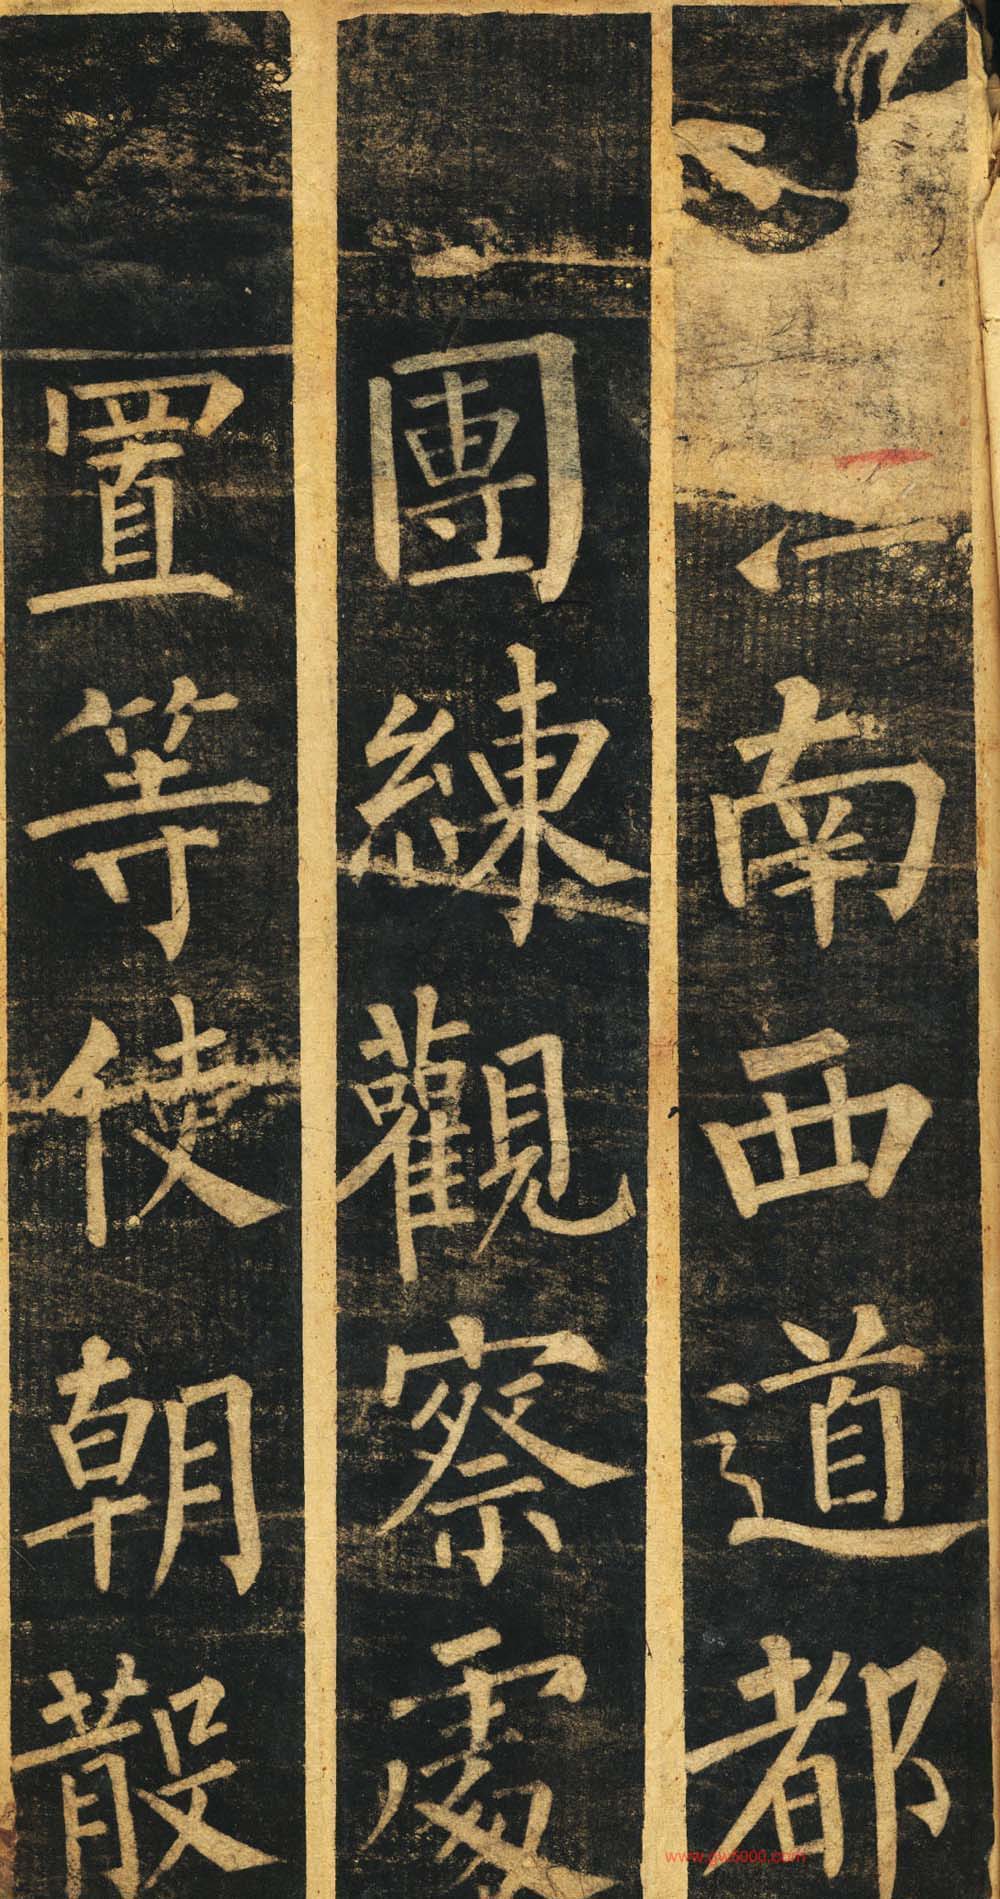 南西道都
團練觀察處
置等使朝散
www.gw5000.com